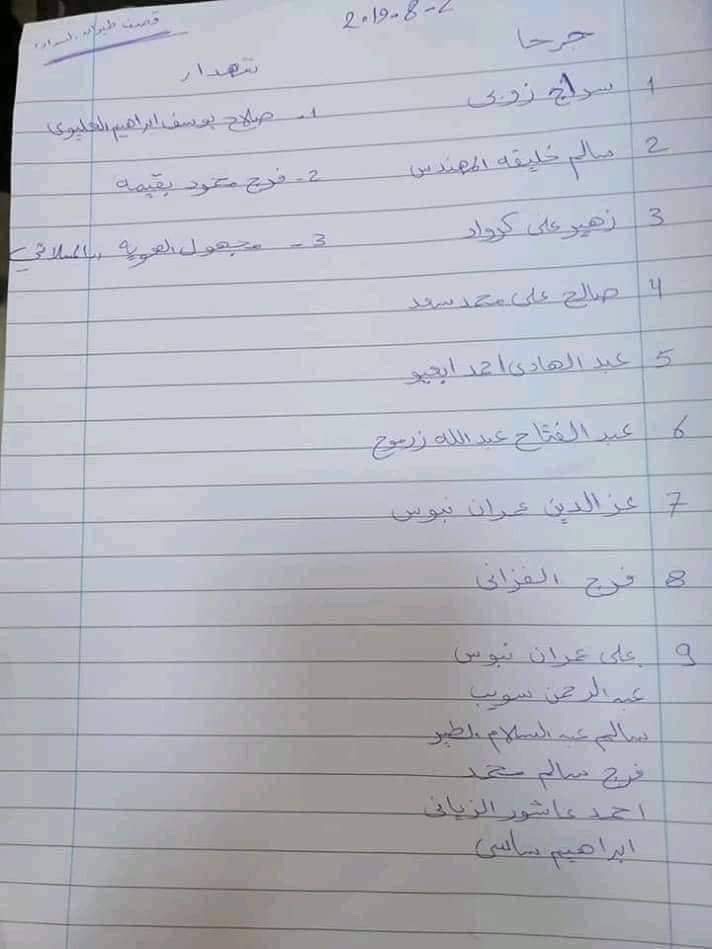 2019-8-2
قصف طيران
جرحا
شهداء
1 سراج زوبي
1- صلاح يوسف ابراهيم
2 سالم خليفه المهندس
2- فرج محمود بقيمه
3 زهير علي كرواد
3- مجهول الهوية
4 صالح على محمد سعد
5 عبد الهادى احمد
6 عبد الفتاح عبد الله زرموح
7 عز الدين عمران نبوس
8 فرج الفزانى
9 على عمران نبوس
عبد الرحمن سويب
سالم عبد السلام
فرج سالم محمد
احمد عاشور الزيانى
ابراهيم ساسى